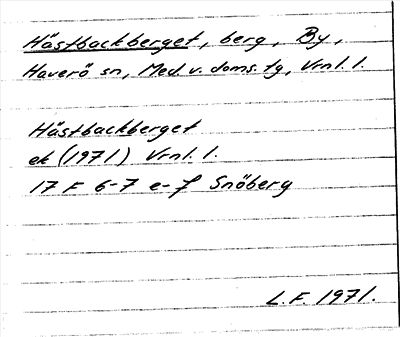 Hästbackberget, berg, By,
Haverö sn, Med. v. doms. tg, Vrnl. l.
Hästbackberget
ek (1971) Vrnl. l.
17 F 6-7 e-f Snöberg
L.F. 1971.